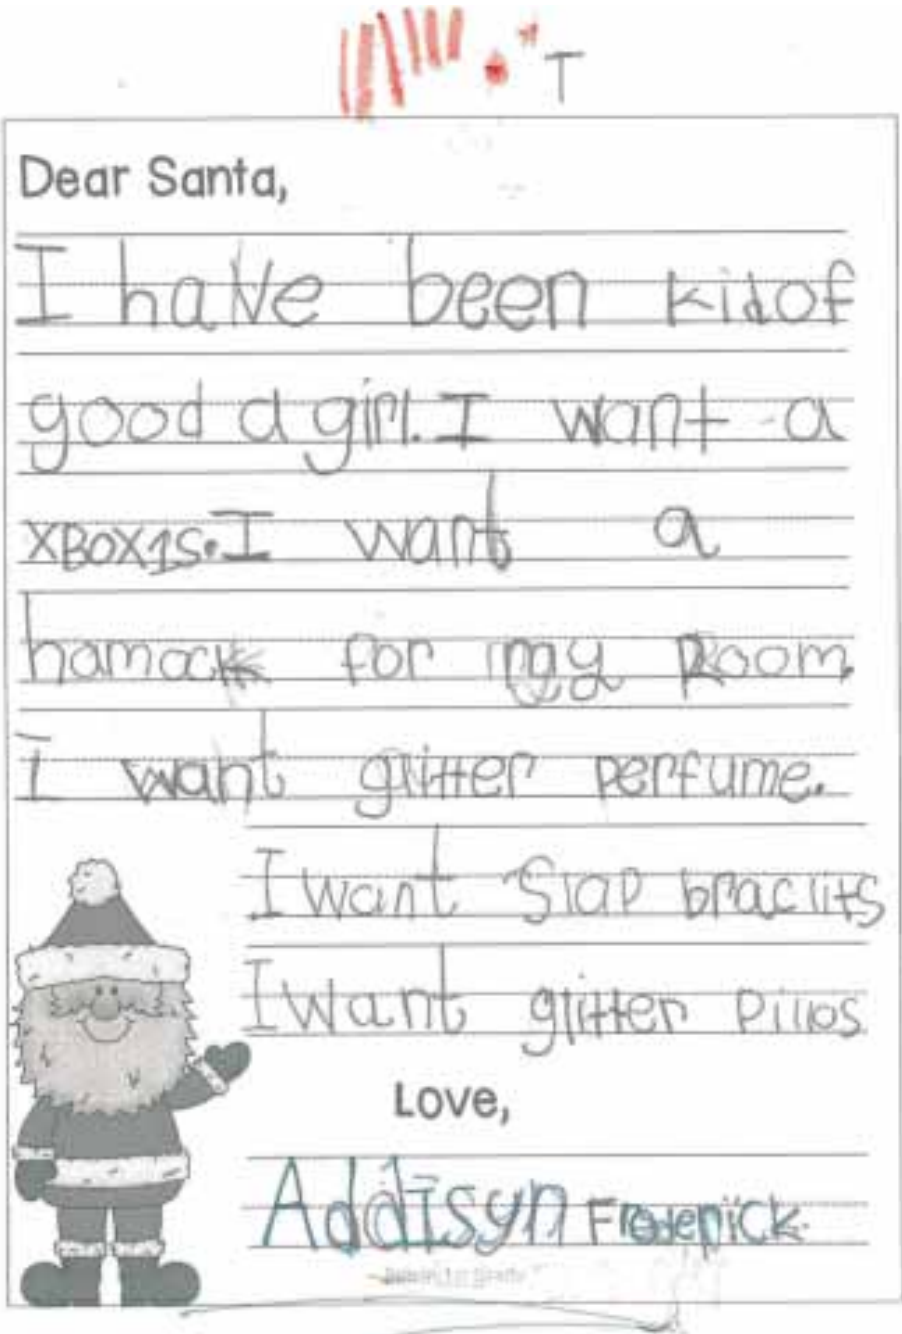 T
Dear Santa,
I have been kidof
good a girl. I want a
XBOX1S. I want a
hamock for my Room.
I want glitter perfume.
I want Slap braclits
I want glitter Pillos
Love,
Addisyn Frederick